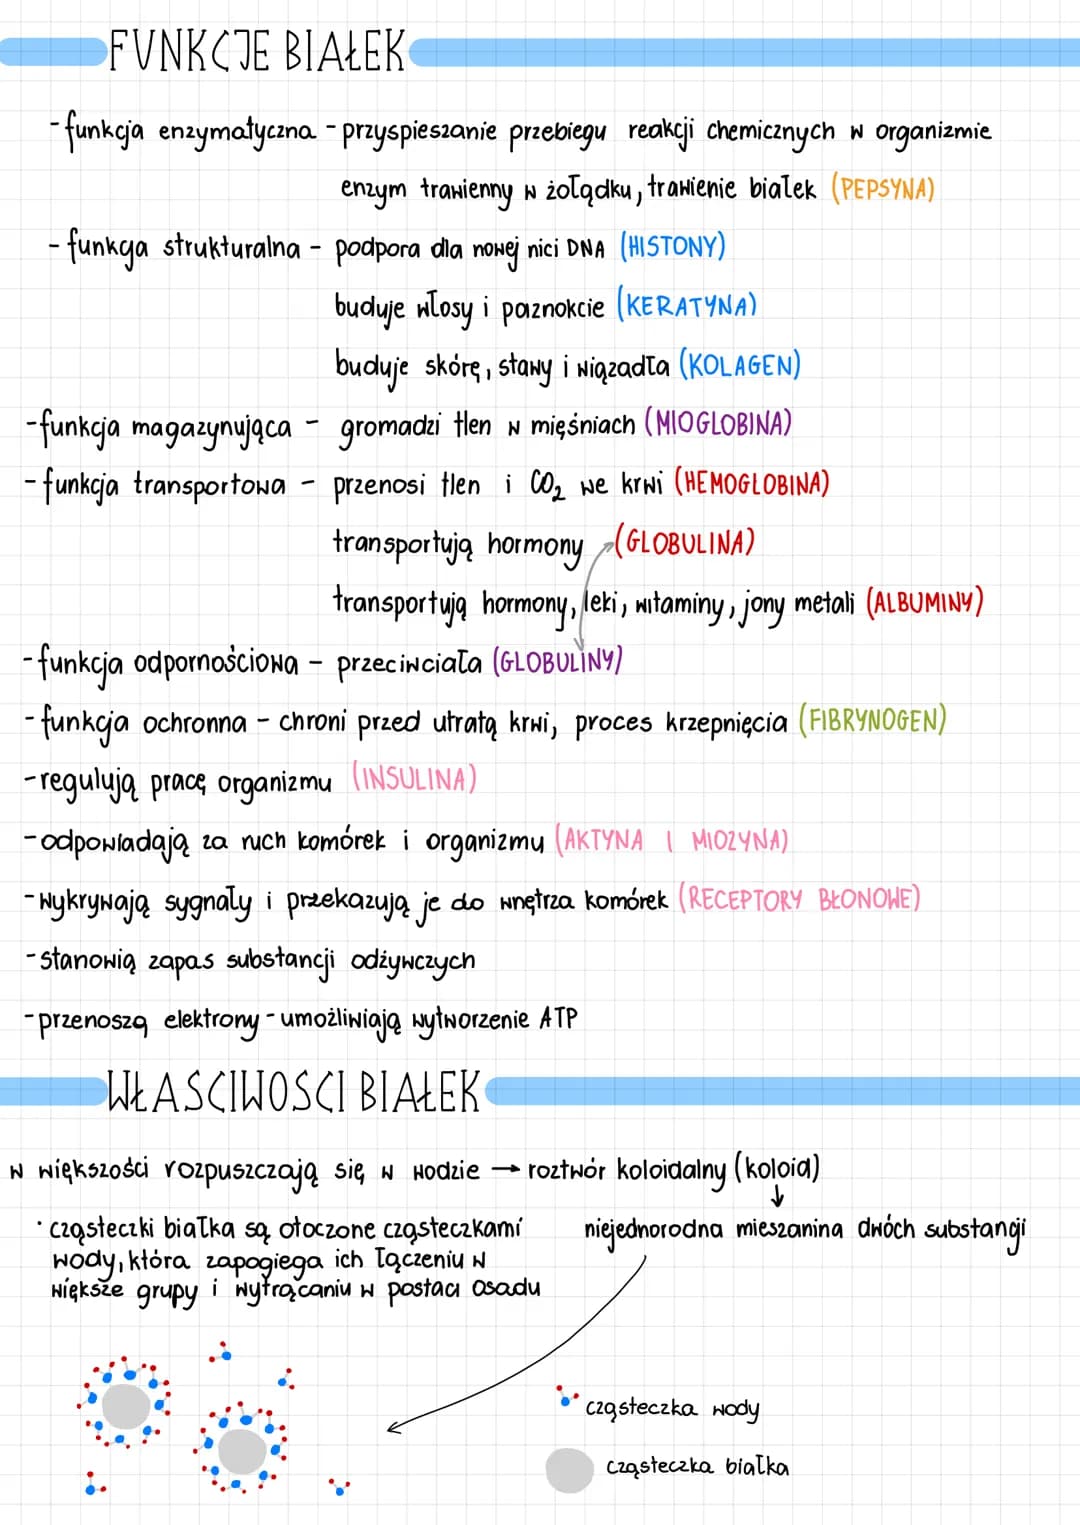 FUNKCJE BIAŁEK
-funkcja enzymatyczna - przyspieszanie przebiegu reakcji chemicznych w organizmie
enzym trawienny w żołądku, trawienie białek (PEPSYNA)
- funkcja strukturalna - podpora dla nowej nici DNA (HISTONY)
buduje włosy i paznokcie (KERATYNA)
buduje skórę, stawy i wiązadła (KOLAGEN)
-funkcja magazynująca - gromadzi tlen w mięśniach (MIOGLOBINA)
-funkcja transportowa - przenosi tlen i CO₂ we krwi (HEMOGLOBINA)
transportują hormony (GLOBULINA)
transportują hormony, leki, witaminy, jony metali (ALBUMINY)
-funkcja odpornościowa - przeciwciała (GLOBULINY)
-funkcja ochronna - chroni przed utratą krwi, proces krzepnięcia (FIBRYNOGEN)
-regulują pracę organizmu (INSULINA)
-odpowiadają za ruch komórek i organizmu (AKTYNA I MIOZYNA)
-wykrywają sygnały i przekazują je do wnętrza komórek (RECEPTORY BŁONOWE)
-stanowią zapas substancji odżywczych
-przenoszą elektrony - umożliwiają wytworzenie ATP
WŁASCIWOSCI BIAŁEK
w większości rozpuszczają się w wodzie → roztwór koloidalny (koloid)
niejednorodna mieszanina dwóch substangi
· cząsteczki białka są otoczone cząsteczkami
wody, która zapogiega ich łączeniu w
większe grupy i wytrącaniu w postaci osadu
cząsteczka wody
cząsteczka białka